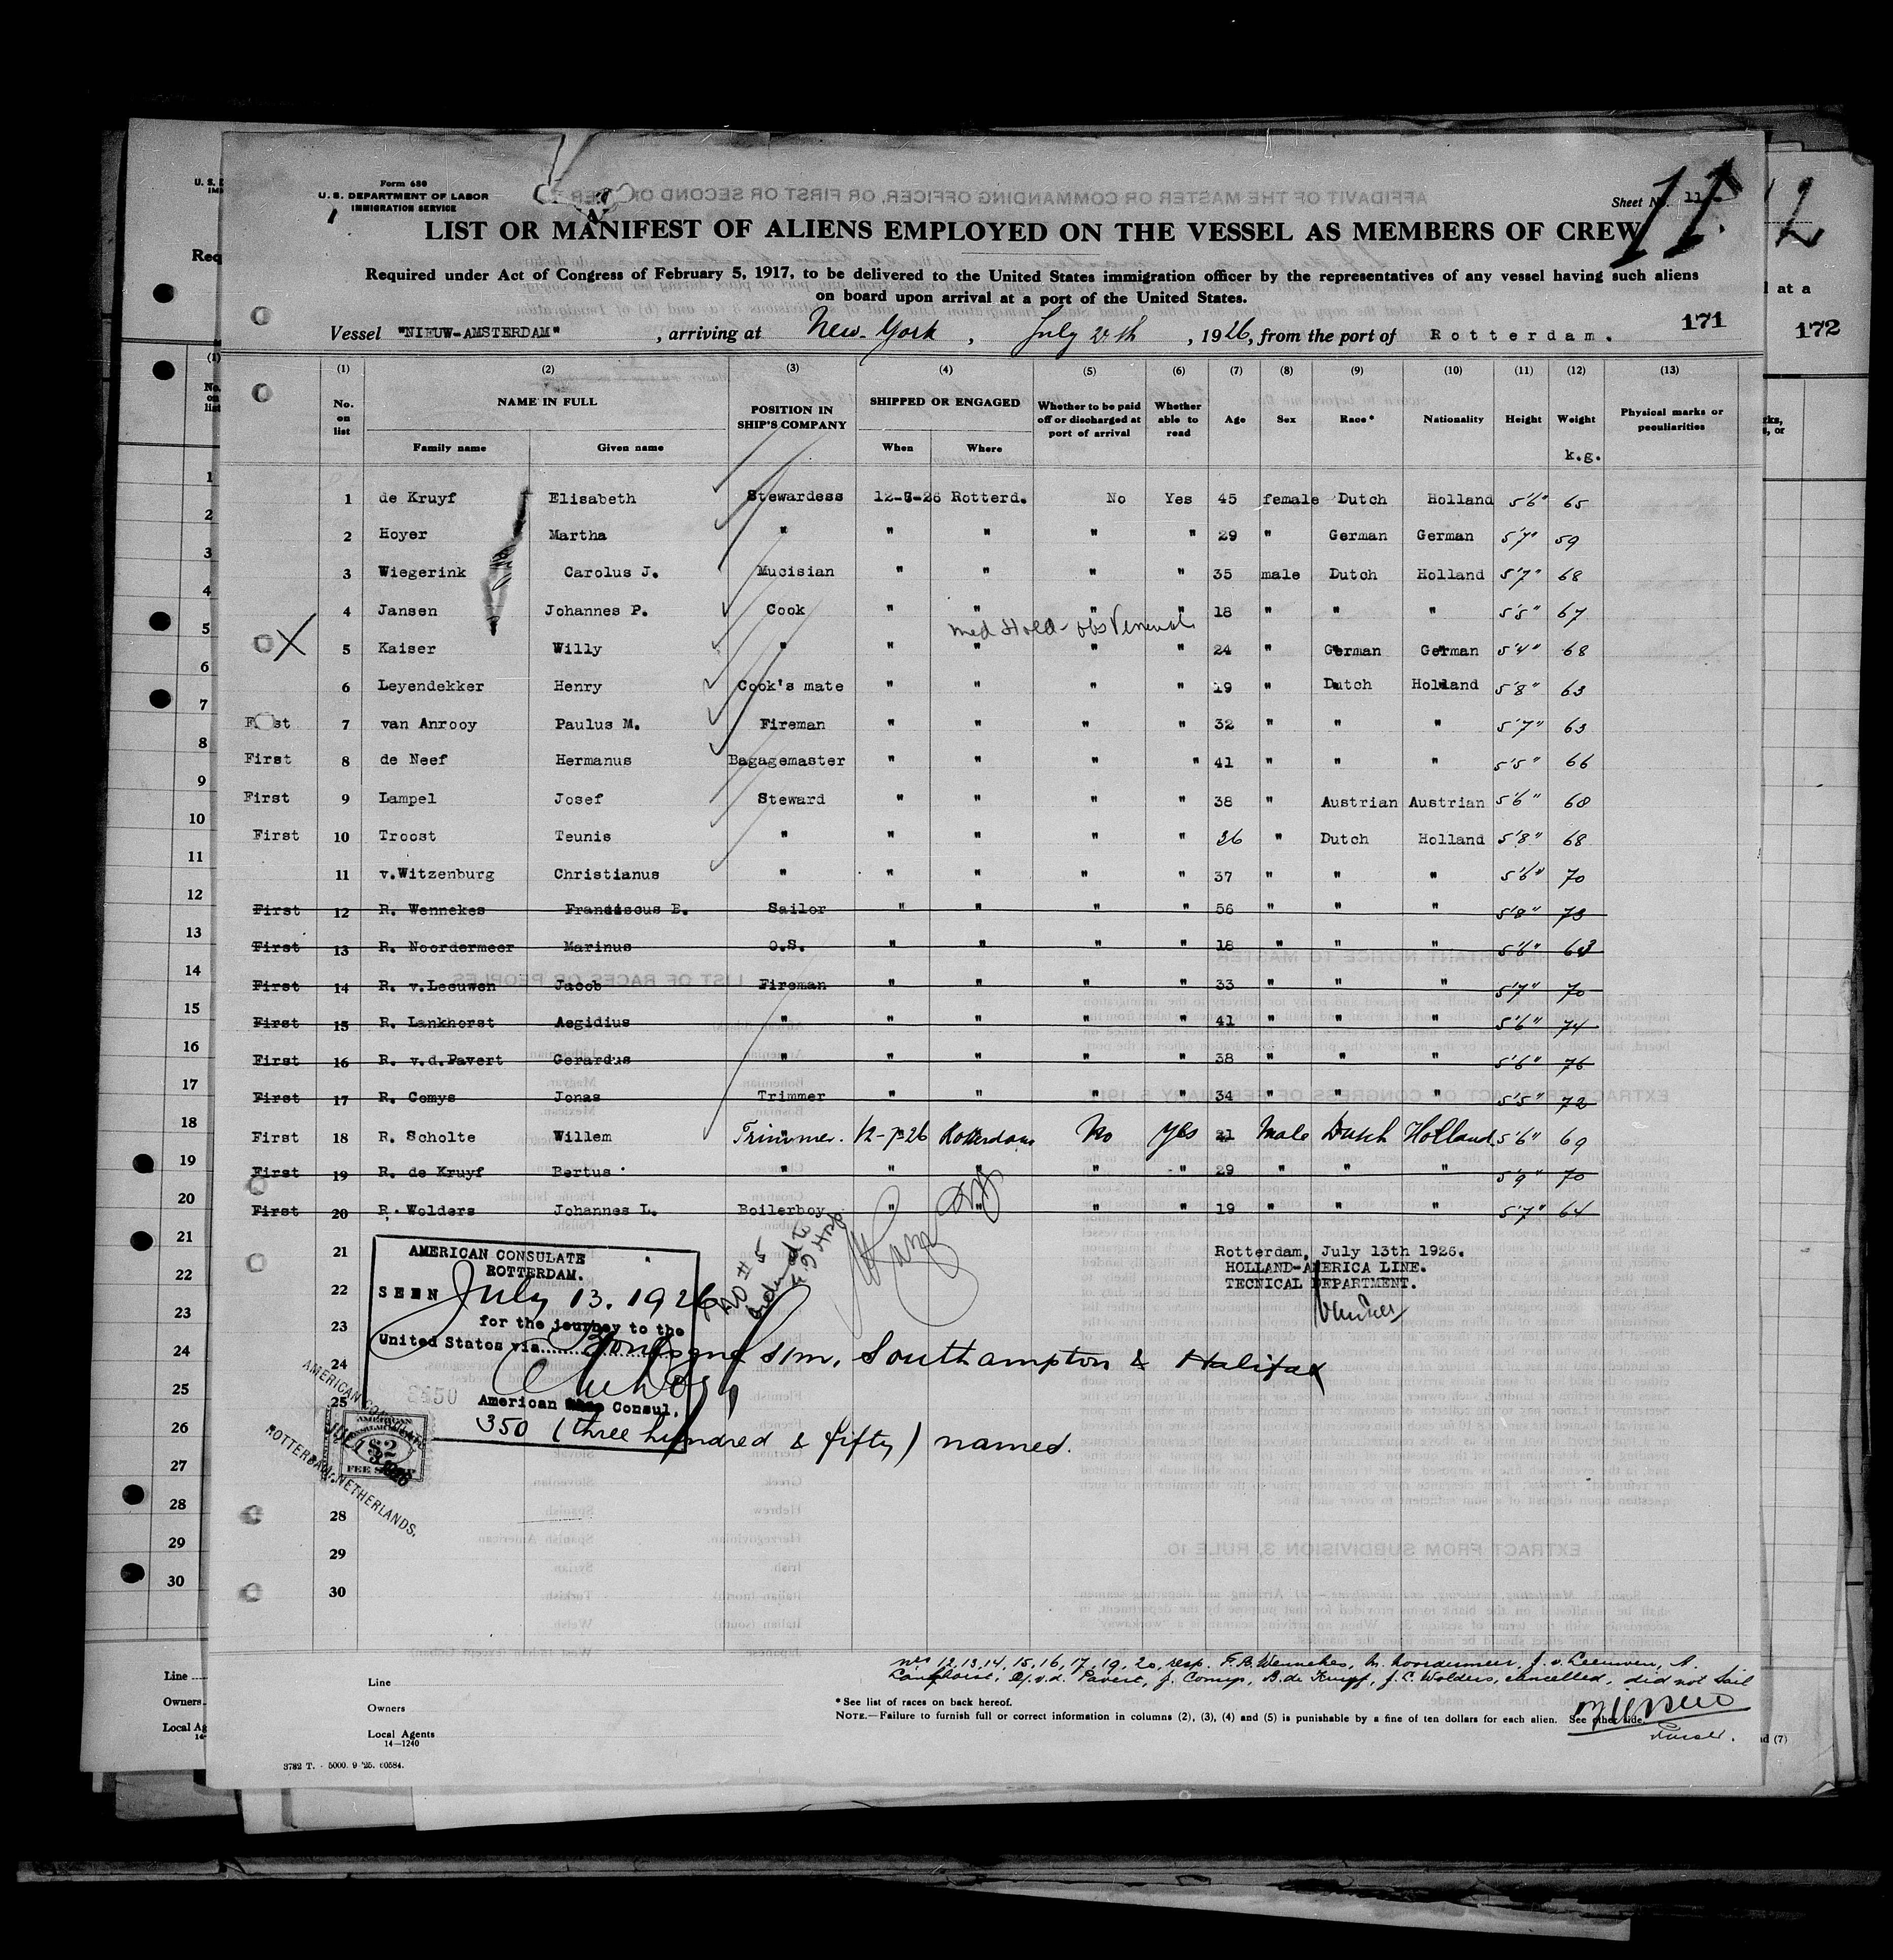 Form 680
U. S. DEPARTMENT OF LABOR
IMMIGRATION SERVICE
Sheet No. 11
11.
2
LIST OR MANIFEST OF ALIENS EMPLOYED ON THE VESSEL AS MEMBERS OF CREW
Required under Act of Congress of February 5, 1917, to be delivered to the United States immigration officer by the representatives of any vessel having such aliens
on board upon arrival at a port of the United States.
171
172
Vessel "NIEUW-AMSTERDAM", arriving at New-York, July , 1926, from the port of Rotterdam.
(1) (2) (3) (4) (5) (6) (7) (8) (9) (10) (11) (12) (13)
No. on list NAME IN FULL Family name Given name POSITION IN SHIP'S COMPANY SHIPPED OR ENGAGED When Where Whether to be paid off or discharged at port of arrival Whether able to read Age Sex Race* Nationality Height Weight k.g. Physical marks or peculiarities
1 de Kruyf Elisabeth Stewardess 12-7-26 Rotterd. No Yes 45 female Dutch Holland 5'6" 65
2 Hoyer Martha " " " " " 29 " German German 5'7" 59
3 Wiegerink Carolus J. Mucisian " " " " 35 male Dutch Holland 5'7" 68
4 Jansen Johannes P. Cook " " " " 18 " " " 5'5" 67
Med Hold - obs Venereal
X 5 Kaiser Willy " " " " " 24 " German German 5'4" 68
6 Leyendekker Henry Cook's mate " " " " 19 " Dutch Holland 5'8" 63
First 7 van Anrooy Paulus M. Fireman " " " " 32 " " " 5'7" 63
First 8 de Neef Hermanus Bagagemaster " " " " 41 " " " 5'5" 66
First 9 Lampel Josef Steward " " " " 38 " Austrian Austrian 5'6" 68
First 10 Troost Teunis " " " " " 26 " Dutch Holland 5'8" 68
11 v.Witzenburg Christianus " " " " " 37 " " " 5'6" 70
First 12 R. Wennekes Franciscus B. Sailor " " " " 56 " " " 5'8" 73
First 13 R. Noordermeer Marinus O.S. " " " " 18 " " " 5'6" 63
First 14 R. v.Leeuwen Jacob Fireman " " " " 33 " " " 5'7" 70
First 15 R. Lankhorst Aegidius " " " " " 41 " " " 5'6" 74
First 16 R. v.d.Pavert Gerardus " " " " " 38 " " " 5'6" 76
First 17 R. Comys Jonas Trimmer " " " " 34 " " " 5'5" 72
First 18 R. Scholte Willem Trimmer. 12-7-26 Rotterdam No Yes 21 Male Dutch Holland 5'6" 69
First 19 R. de Kruyf Bertus " " " " " 29 " " " 5'9" 70
First 20 R. Wolders Johannes L. Boilerboy " " " " 19 " " " 5'7" 64
21
22
23
24
25
28
29
30
AMERICAN CONSULATE
ROTTERDAM.
SEEN July 13. 1926
for the journey to the
United States via Boulogne s/m, Southampton & Halifax
American Consul.
350 (three hundred & fifty) named.
No # 5
Rotterdam, July 13th 1926.
HOLLAND-AMERICA LINE.
TECNICAL DEPARTMENT.
AMERICAN
$2
FEE STAMP
ROTTERDAM, NETHERLANDS.
nrs 12, 13, 14, 15, 16, 17, 19, 20, resp. F.B. Wennekes, M. Noordermeer, J. v. Leeuwen, A.
Lankhorst, G. v.d. Pavert, J. Comys, B. de Kruyf, J.L. Wolders, cancelled, did not sail
Line
Owners
Local Agents
14—1240
* See list of races on back hereof.
NOTE.—Failure to furnish full or correct information in columns (2), (3), (4) and (5) is punishable by a fine of ten dollars for each alien. See other side.
Purser.
3782 T. - 5000. 9-'25. 60584.